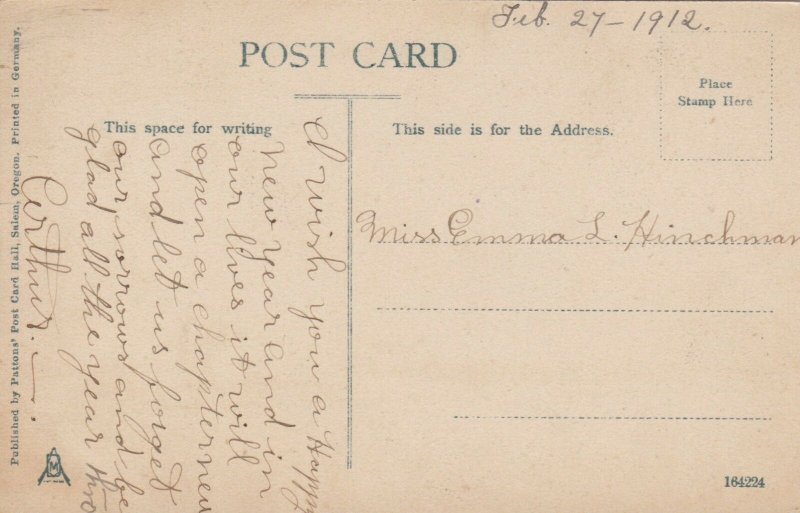 Feb. 27-1912.
POST CARD
Place
Stamp Here
This space for writing
This side is for the Address.
I wish you a Happy
New Year and in
our lives it will
open a chapter new
and let us forget
our sorrows and be
glad all the year thro
Arthur. —.
Miss Emma L. Hinchman
Published by Pattons' Post Card Hall, Salem, Oregon. Printed in Germany.
164224